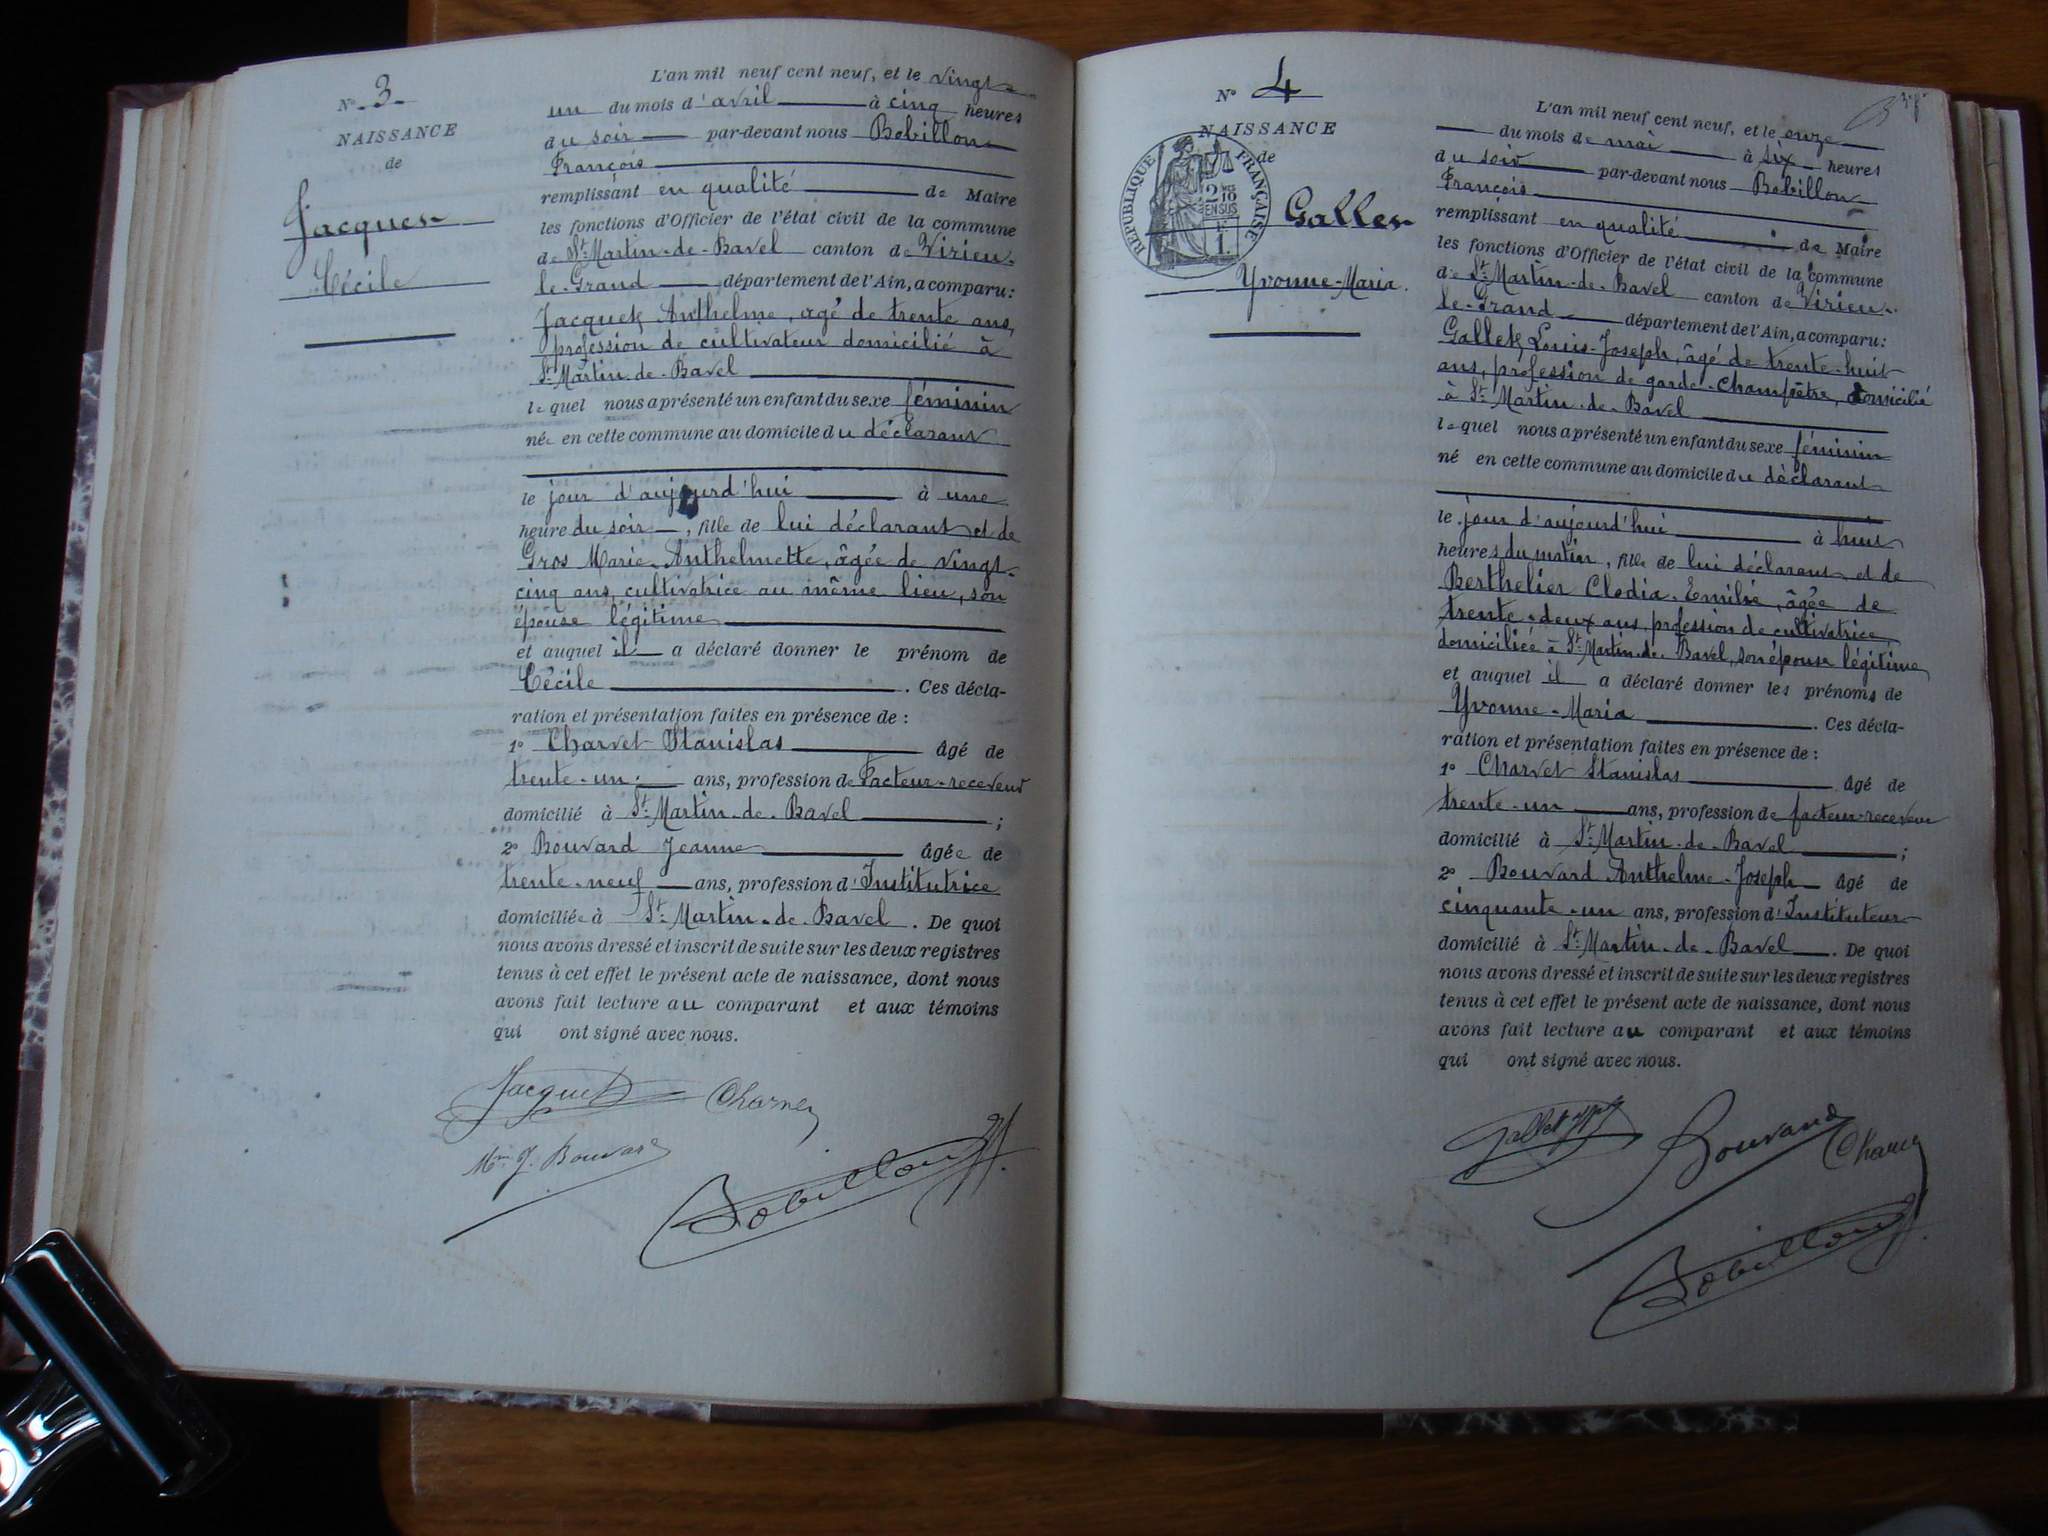 N° 3
NAISSANCE
de
Jacquet
Cécile
L'an mil neuf cent neuf, et le vingt
un du mois d'avril à cinq heures
du soir par-devant nous Bobillon
François
remplissant en qualité de Maire
les fonctions d'Officier de l'état civil de la commune
de St Martin-de-Bavel canton de Virieu-
le-Grand département de l'Ain, a comparu :
Jacquet Anthelme, âgé de trente ans,
profession de cultivateur domicilié à
St Martin-de-Bavel
lequel nous a présenté un enfant du sexe féminin
née en cette commune au domicile du déclarant
le jour d'aujourd'hui à une
heure du soir, fille de lui déclarant et de
Gros Marie-Anthelmette, âgée de vingt-
cinq ans, cultivatrice au même lieu, son
épouse légitime
et auquel il a déclaré donner le prénom de
Cécile . Ces décla-
ration et présentation faites en présence de :
1° Charvet Stanislas âgé de
trente-un ans, profession de Facteur-receveur
domicilié à St Martin-de-Bavel ;
2° Bouvard Jeanne âgée de
trente-neuf ans, profession d'Institutrice
domiciliée à St Martin-de-Bavel . De quoi
nous avons dressé et inscrit de suite sur les deux registres
tenus à cet effet le présent acte de naissance, dont nous
avons fait lecture au comparant et aux témoins
qui ont signé avec nous.
Jacquet Charvet
Mme J. Bouvard
Bobillon
N° 4
NAISSANCE
de
RÉPUBLIQUE FRANÇAISE
2 10
EN SUS
1
Gallet
Yvonne-Maria.
L'an mil neuf cent neuf, et le onze
du mois de mai à six heures
du soir par-devant nous Bobillon
François
remplissant en qualité de Maire
les fonctions d'Officier de l'état civil de la commune
de St Martin-de-Bavel canton de Virieu-
le-Grand département de l'Ain, a comparu :
Gallet, Louis-Joseph, âgé de trente-huit
ans, profession de garde-champêtre, domicilié
à St Martin-de-Bavel
lequel nous a présenté un enfant du sexe féminin
né en cette commune au domicile du déclarant
le jour d'aujourd'hui à huit
heures du matin, fille de lui déclarant et de
Berthelier Clodia-Emilie, âgée de
trente-deux ans, profession de cultivatrice,
domiciliée à St Martin-de-Bavel, son épouse légitime
et auquel il a déclaré donner les prénoms de
Yvonne-Maria . Ces décla-
ration et présentation faites en présence de :
1° Charvet Stanislas âgé de
trente-un ans, profession de facteur-receveur
domicilié à St Martin-de-Bavel ;
2° Bouvard Anthelme-Joseph âgé de
cinquante-un ans, profession d'Instituteur
domicilié à St Martin-de-Bavel . De quoi
nous avons dressé et inscrit de suite sur les deux registres
tenus à cet effet le présent acte de naissance, dont nous
avons fait lecture au comparant et aux témoins
qui ont signé avec nous.
Gallet Bouvard Charvet
Bobillon